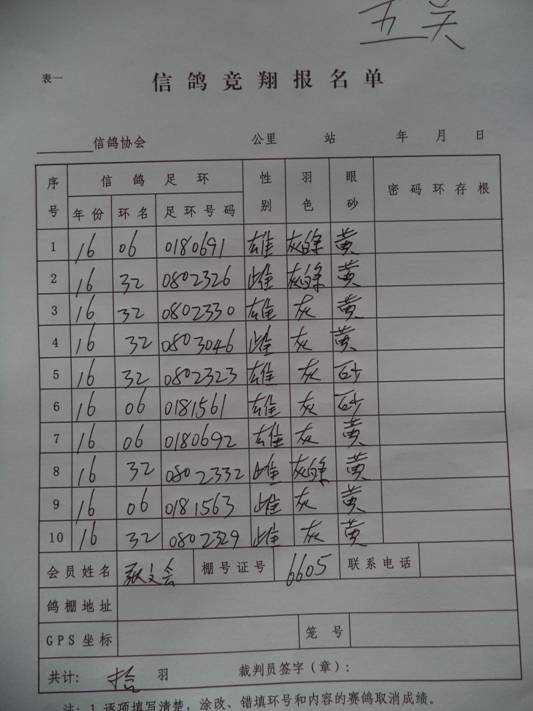 五关
表一
信鸽竞翔报名单
信鸽协会 公里 站 年 月 日
序号 信鸽足环 性别 羽色 眼砂 密码环存根
年份 环名 足环号码
1 16 06 0180691 雄 灰白条 黄
2 16 32 0802326 雌 灰白条 黄
3 16 32 0802330 雄 灰 黄
4 16 32 0803046 雌 灰 黄
5 16 32 0802323 雄 灰 砂
6 16 06 0181561 雄 灰 砂
7 16 06 0180692 雄 灰 黄
8 16 32 0802332 雌 灰白条 黄
9 16 06 0181563 雌 灰 黄
10 16 32 0802329 雌 灰 黄
会员姓名 张文会 棚号证号 6605 联系电话
鸽棚地址
GPS坐标 笼号
共计: 拾 羽 裁判员签字(章):
注: 1.逐项填写清楚,涂改、错填环号和内容的赛鸽取消成绩。